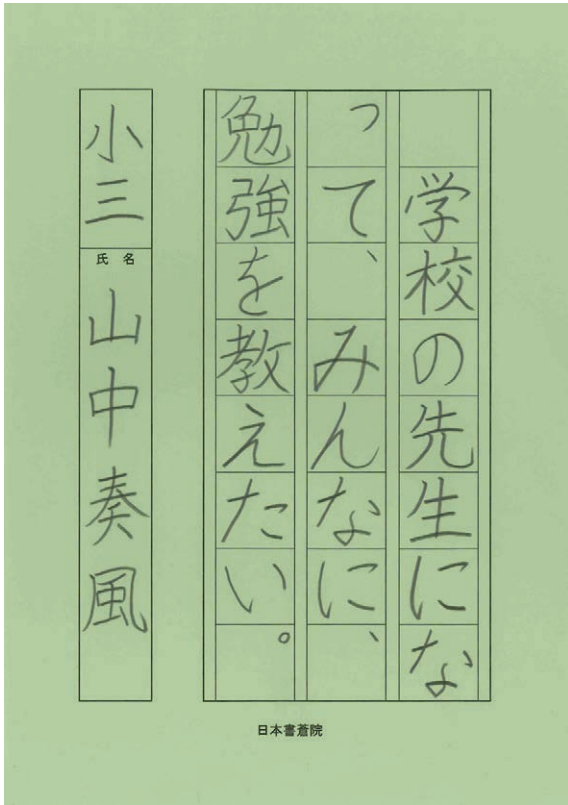 学校の先生にな
って、みんなに、
勉強を教えたい。
小三
氏名
山中奏風
日本書蒼院